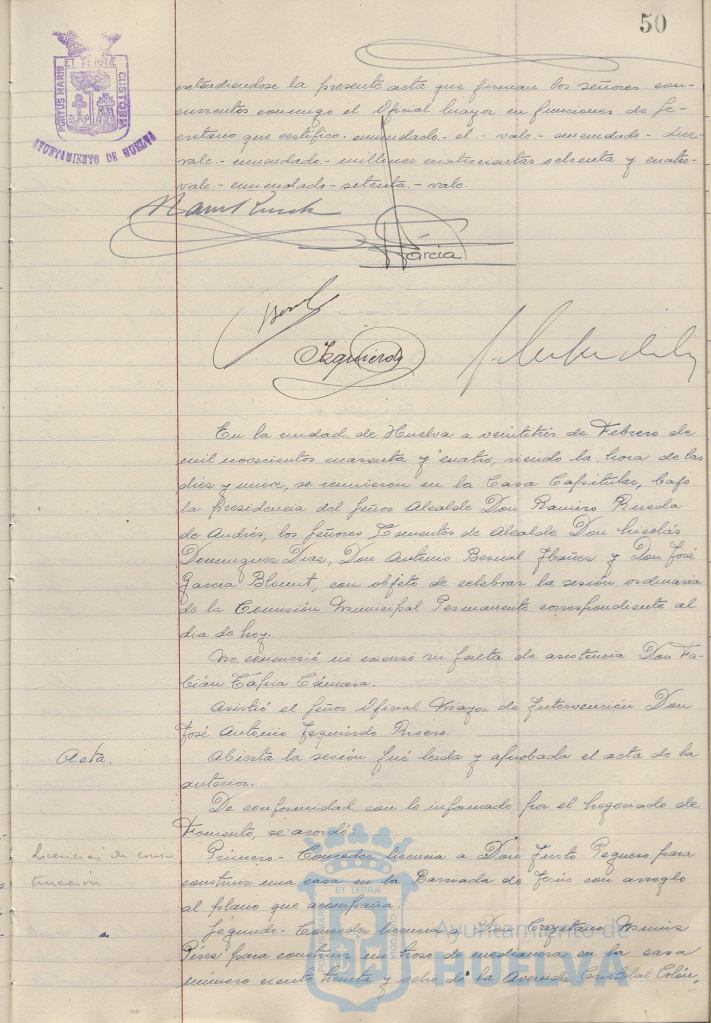 50
PORTUS MARIS ET TERRÆ CUSTODIA
AYUNTAMIENTO DE HUELVA
extendiendose la presente acta que firman los señores con-
currentes conmigo el Oficial Mayor en funciones de Se-
cretario que certifico.- enmendado- el- vale- enmendado- dice-
vale.- enmendado- millones cuatrocientas ochenta y cuatro-
vale.- enmendado- setenta.- vale.
García
Izquierdo
En la ciudad de Huelva a veintitrés de Febrero de
mil novecientos cuarenta y cuatro, siendo la hora de las
diez y nueve, se reunieron en la Casa Capitular, bajo
la presidencia del Señor Alcalde Don Ramiro Rueda
de Andrés, los Señores Tenientes de Alcalde Don Nicolás
Dominguez Diaz, Don Antonio Bernal Ibañez y Don José
Garcia Blount, con objeto de celebrar la sesión ordinaria
de la Comisión Municipal Permanente correspondiente al
dia de hoy.
No concurrió ni excusó su falta de asistencia Don Fa-
bián Tapia Cámara.
Asistió el Señor Oficial Mayor de Intervención Don
José Antonio Izquierdo Risero.
Acta.
Abierta la sesión fué leida y aprobada el acta de la
anterior.
De conformidad con lo informado por el Negociado de
Fomento, se acordó:
Licencias de cons-
trucción
Primero.- Conceder licencia a Don Justo Peguero para
construir una casa en la Barriada de Jesús con arreglo
al plano que acompaña.
Segundo.- Conceder licencia a Don Cayetano Muniz
Pérez para construir un trozo de medianera en la casa
número ciento treinta y ocho de la Avenida Cristobal Colón,
PORTUS MARIS ET TERRÆ CUSTODIA
Ayuntamiento de
HUELVA